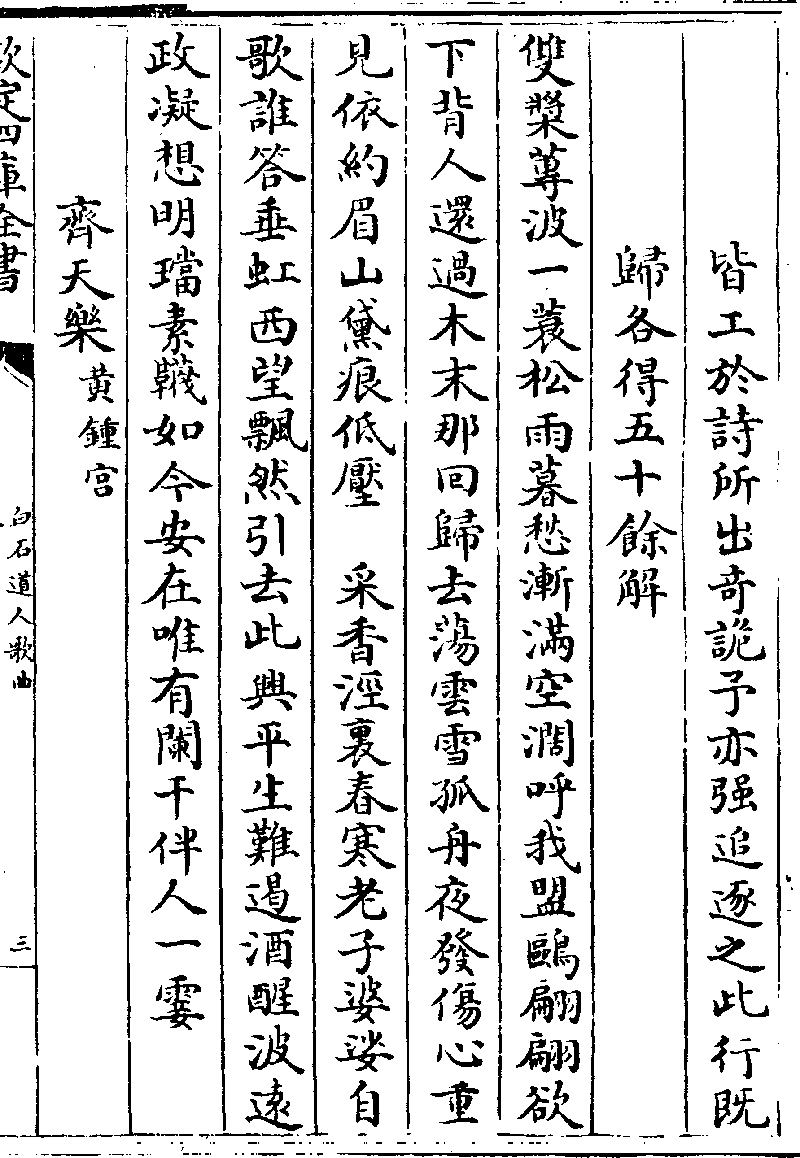 皆工於詩所出奇詭予亦强追逐之此行既
歸各得五十餘解
雙槳蓴波一蓑松雨暮愁漸滿空濶呼我盟鷗翩翩欲
下背人還過木末那回歸去蕩雲雪孤舟夜發傷心重
見依約眉山黛痕低壓　采香涇裏春寒老子婆娑自
歌誰答垂虹西望飄然引去此興平生難遏酒醒波遠
政凝想明璫素韈如今安在唯有闌干伴人一霎
齊天樂黄鍾宫
欽定四庫全書
白石道人歌曲
三